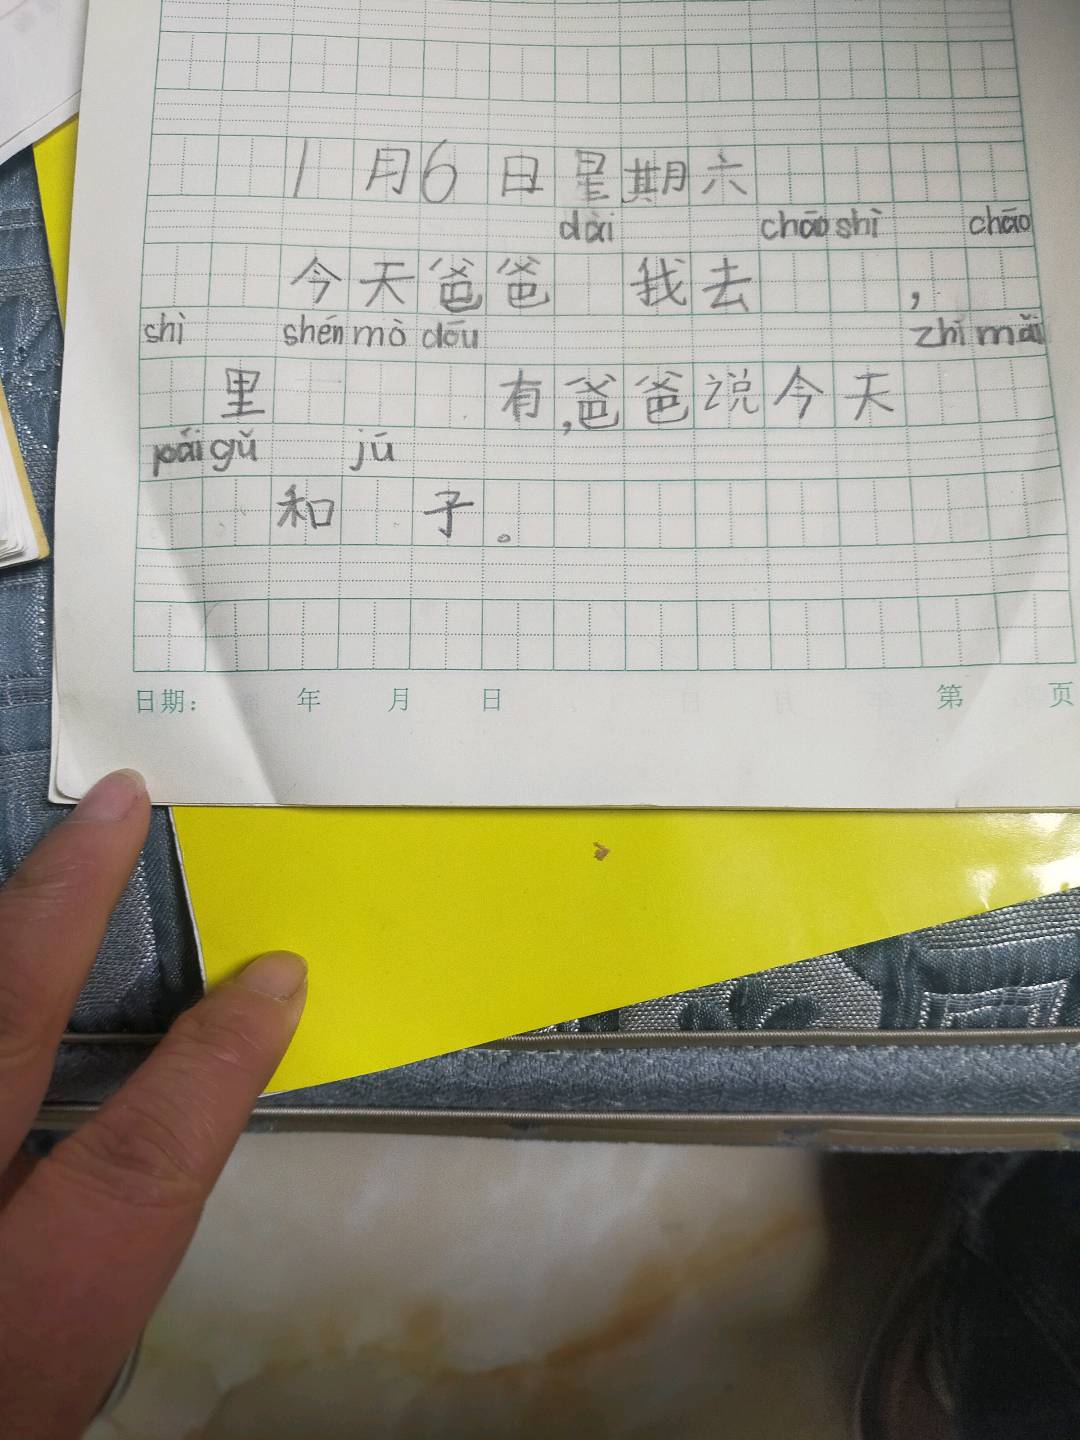 1月6日星期六
dài chāo shì chāo
今天爸爸 我去 ,
shì shén mò dōu zhǐ mǎi
里 有,爸爸说今天
pái gǔ jū
和 子。
日期: 年 月 日 第 页